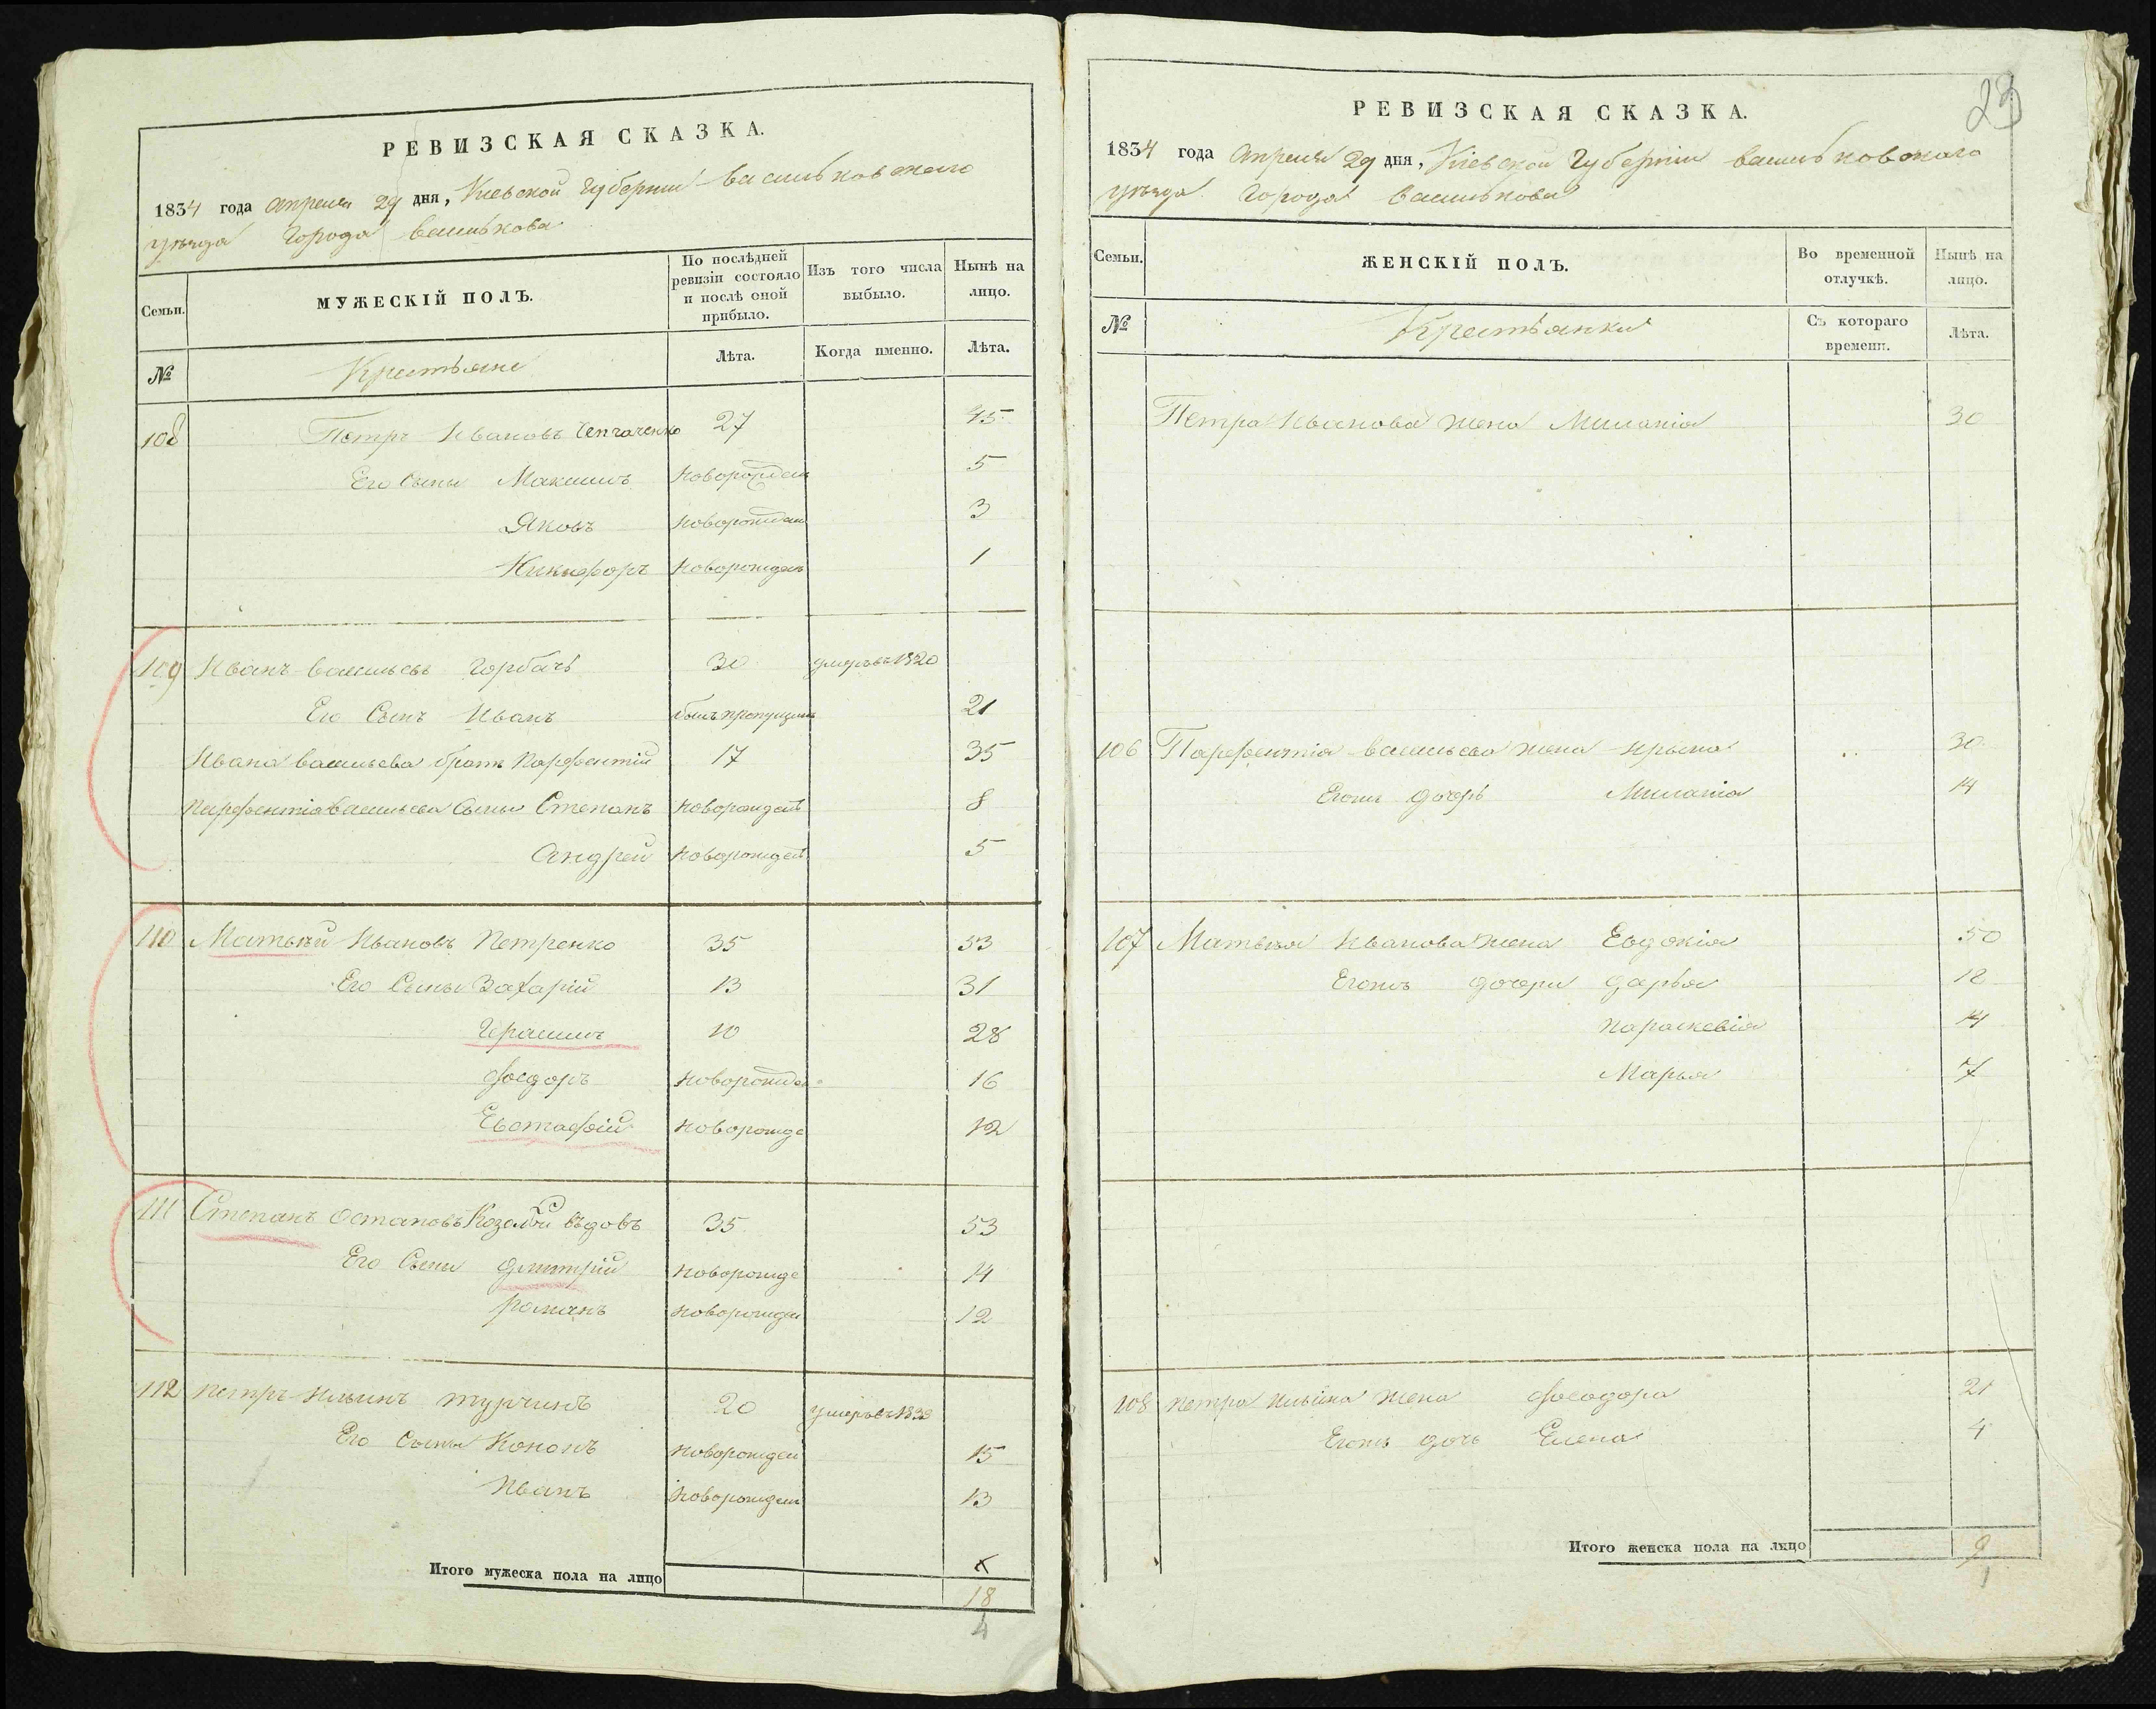 РЕВИЗСКАЯ СКАЗКА.
1834 года апреля 29 дня, Кіевской Губерніи васильковскаго
уѣзда Города василькова
Семьи.
МУЖЕСКІЙ ПОЛЪ.
По послѣдней ревизіи состояло и послѣ оной прибыло.
Изъ того числа выбыло.
Нынѣ на лицо.
№
Крестьяне
Лѣта.
Когда именно.
Лѣта.
108 Петръ Ивановъ 27 45
Его Сыны Максимъ новорожден 5
Яковъ новорожден 3
Никифоръ новорожденъ 1
109 Иванъ васильевъ Горбачъ 30 умеръ въ 1820
Его Сынъ Иванъ былъ пропущенъ 21
Ивана васильева братъ Парфентій 17 35
Парфентія васильева Сыны Степанъ новорожденъ 8
Андрей новорожденъ 5
110 Матвѣй Ивановъ Петренко 35 53
Его Сыны Захарій 13 31
Герасимъ 10 28
Феодоръ новорожден 16
Евстафій новорожде 12
111 Степанъ Остаповъ вдовъ 35 53
Его Сыны Дмитрій новорожде 14
Романъ новорожден 12
112 Петръ Ильинъ Турчинъ 20 умеръ въ 1833
Его Сыны Кононъ новорожден 15
Иванъ новорожден 13
Итого мужеска пола на лицо
18
4
23
РЕВИЗСКАЯ СКАЗКА.
1834 года апреля 29 дня, Кіевской Губерніи васильковскаго
уѣзда Города василькова
Семьи.
ЖЕНСКІЙ ПОЛЪ.
Во временной отлучкѣ.
Нынѣ на лицо.
№
Крестьянки
Съ котораго времени.
Лѣта.
Петра Иванова жена Миланія 30
106 Парфентія васильева жена Ирына 30
Егожъ дочерь Миланія 14
107 Матвѣя Иванова жена Евдокія 50
Егожъ дочери Дарья 18
Параскевія 14
Марья 7
108 Петра Ильина жена Феодора 21
Егожъ дочь Елена 4
Итого женска пола на лицо 9